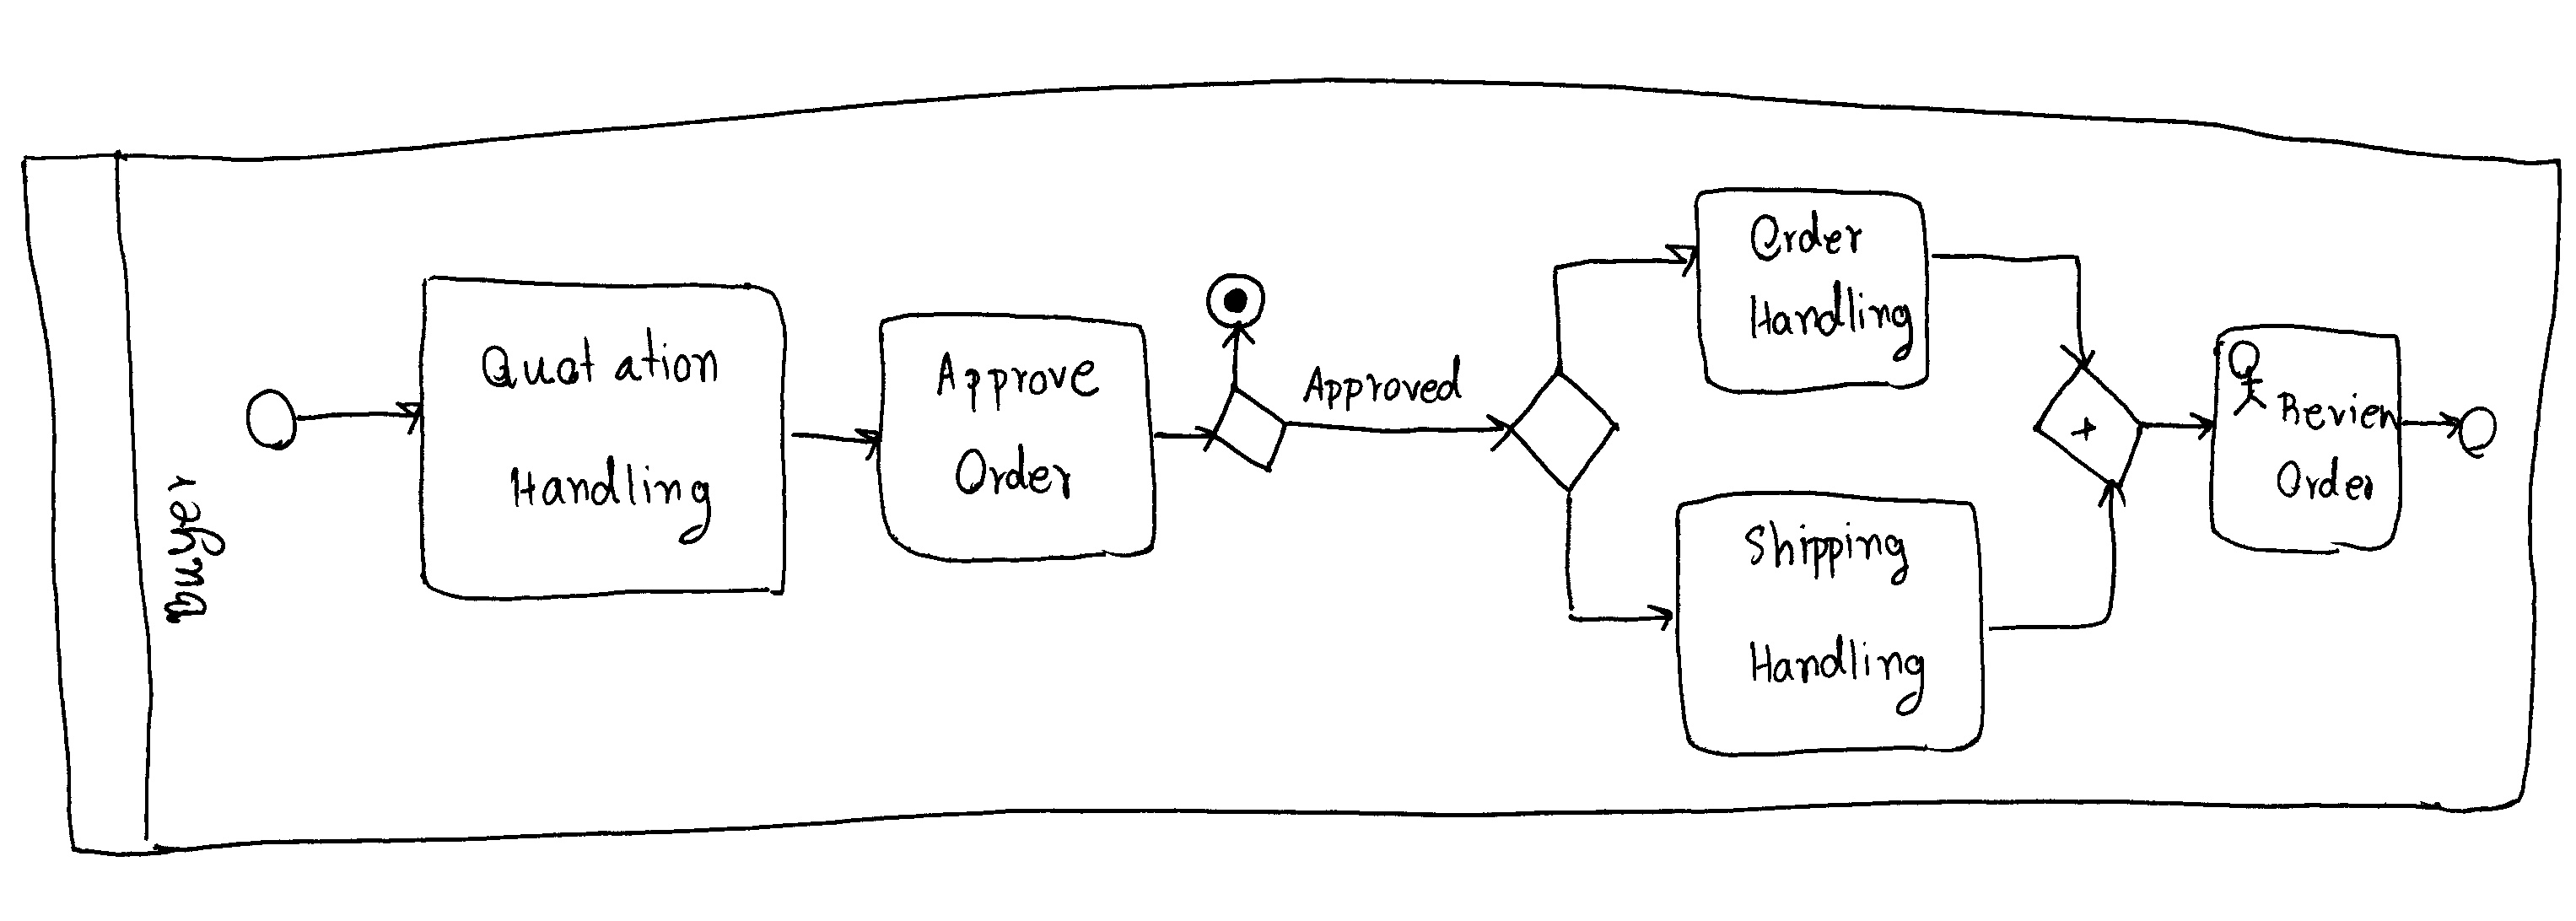 buyer
Quotation
Handling
Approve
Order
Approved
Order
Handling
Shipping
Handling
+
Revien
Order